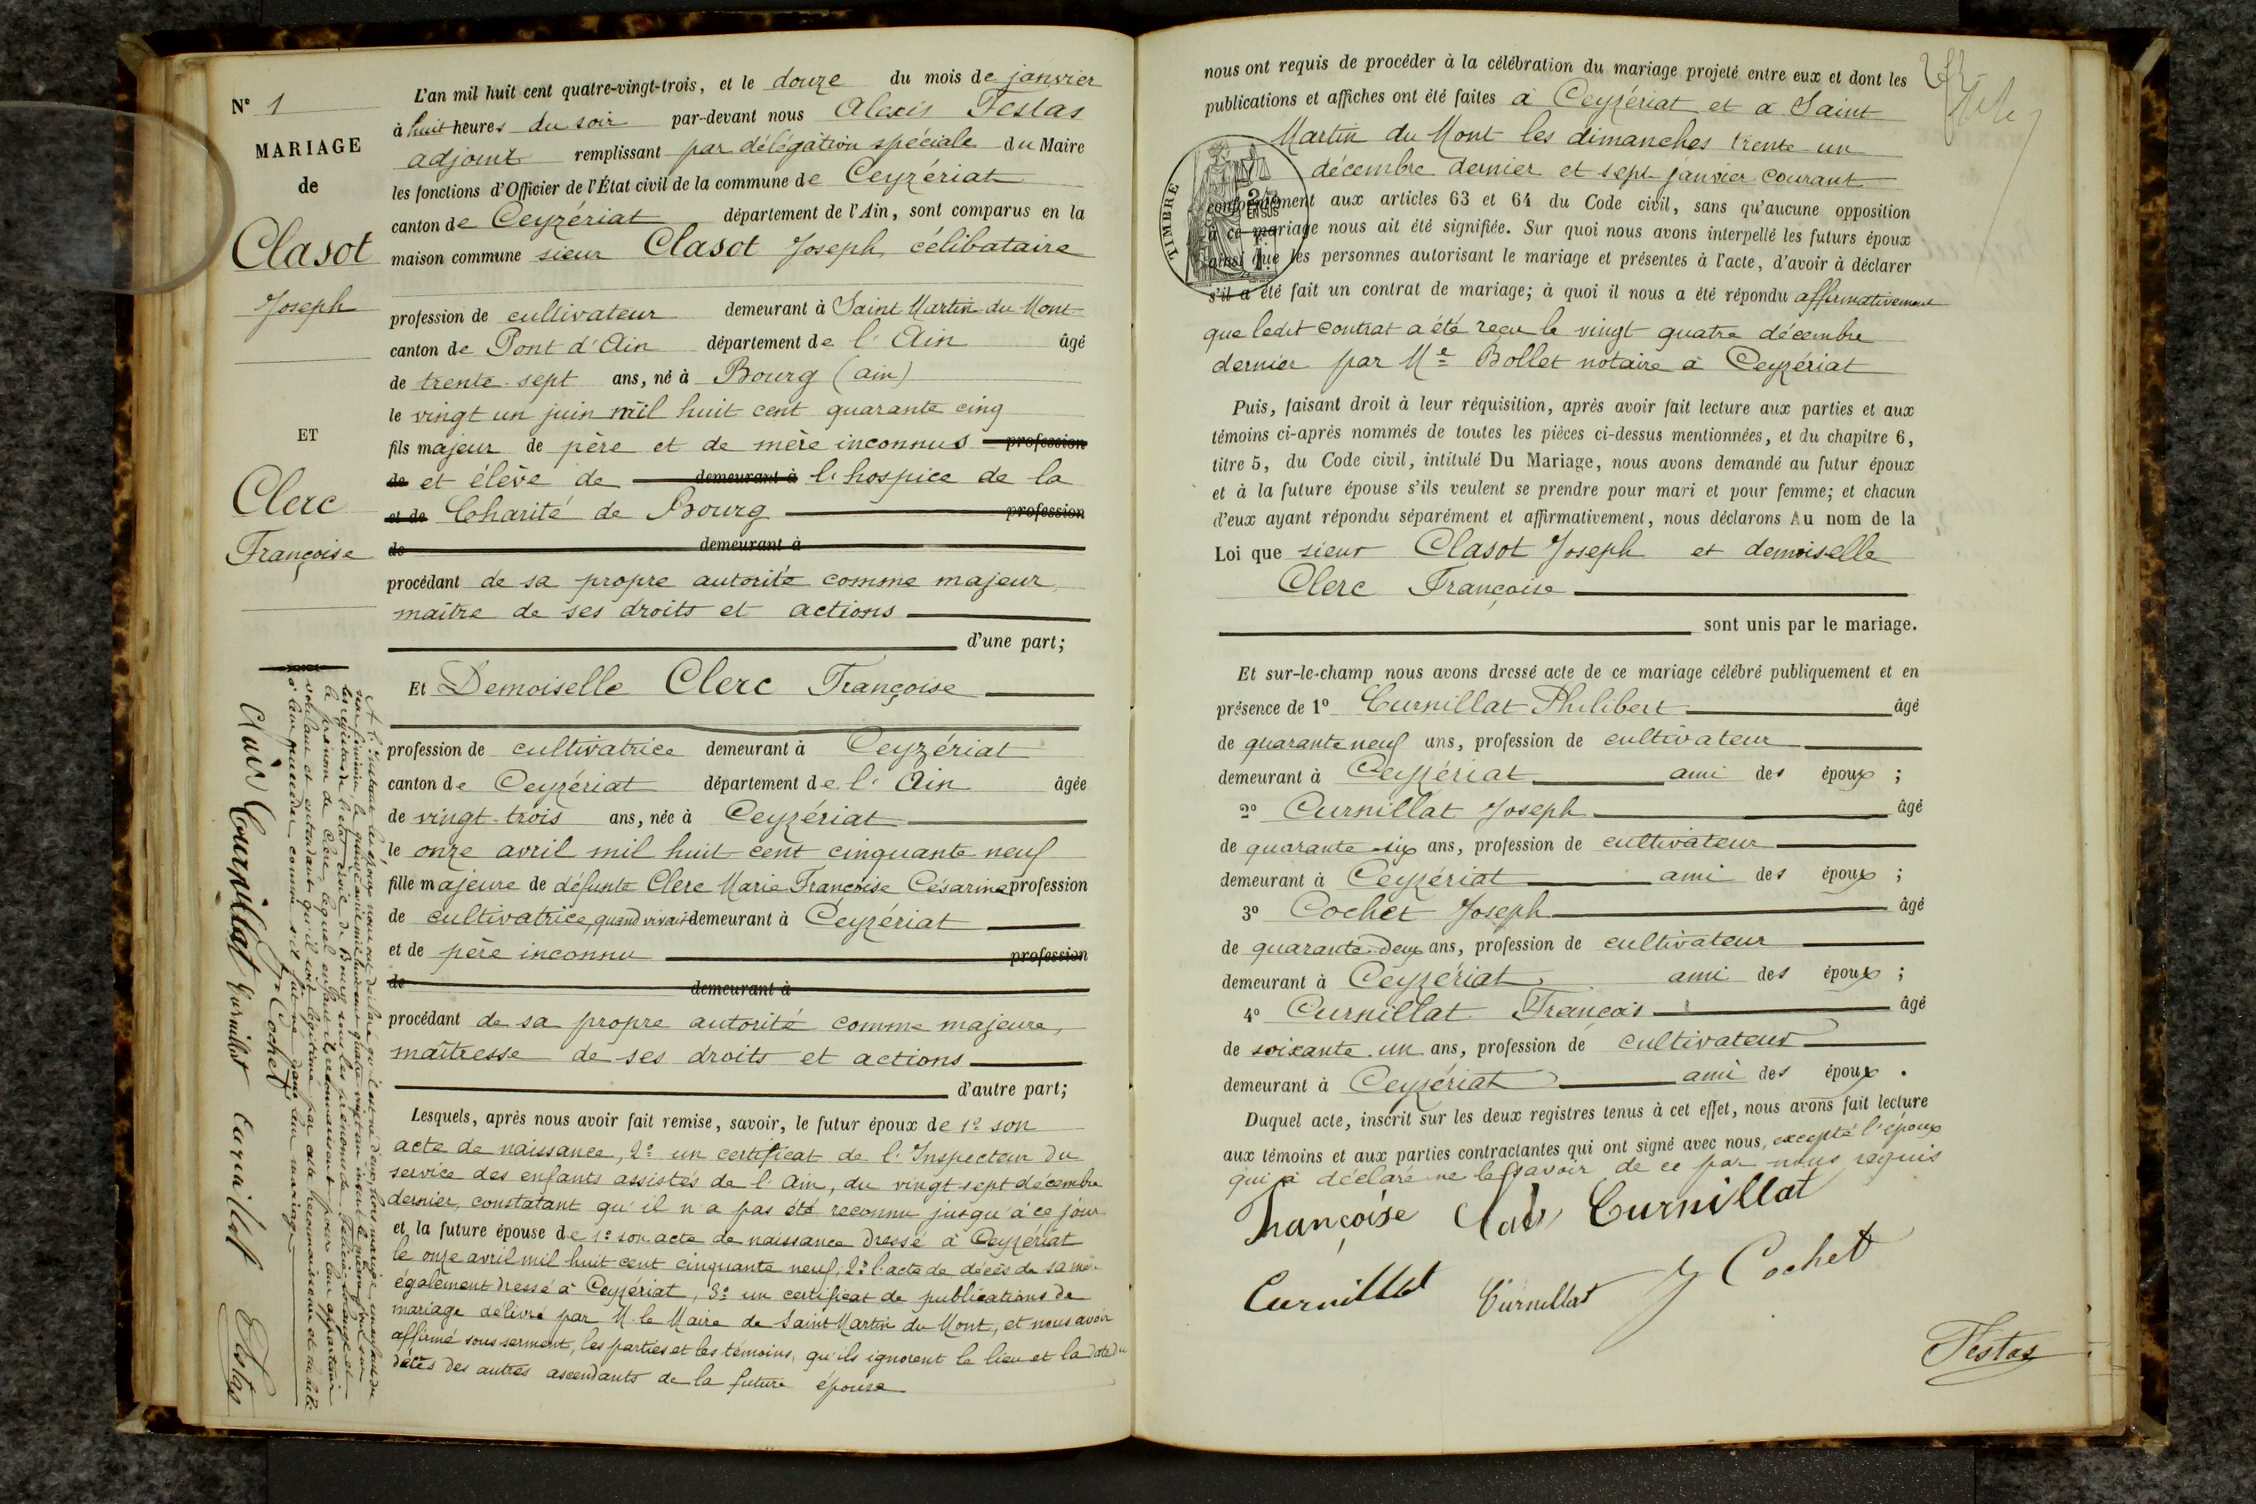 N° 1
MARIAGE
de
Clasot
Joseph
ET
Clerc
Françoise
L'an mil huit cent quatre-vingt-trois, et le douze du mois de janvier
à huit heures du soir par-devant nous Alexis Festas
adjoint remplissant par délégation spéciale du Maire
les fonctions d'Officier de l'État civil de la commune de Ceyzériat
canton de Ceyzériat département de l'Ain, sont comparus en la
maison commune sieur Clasot Joseph, célibataire
profession de cultivateur demeurant à Saint Martin du Mont
canton de Pont d'Ain département de l'Ain âgé
de trente-sept ans, né à Bourg (ain)
le vingt un juin mil huit cent quarante cinq
fils majeur de père et de mère inconnus profession
de et élève de demeurant à l'hospice de la
et de Charité de Bourg profession
de demeurant à
procédant de sa propre autorité comme majeur,
maître de ses droits et actions
d'une part;
Et Demoiselle Clerc Françoise
profession de cultivatrice demeurant à Ceyzériat
canton de Ceyzériat département de l'Ain âgée
de vingt-trois ans, née à Ceyzériat
le onze avril mil huit cent cinquante neuf
fille majeure de défunte Clerc Marie Françoise Césarine profession
de cultivatrice, quand vivait demeurant à Ceyzériat
et de père inconnu profession
de demeurant à
procédant de sa propre autorité comme majeure,
maîtresse de ses droits et actions
d'autre part;
Lesquels, après nous avoir fait remise, savoir, le futur époux de 1° son
acte de naissance, 2° un certificat de l'Inspecteur du
service des enfants assistés de l'Ain, du vingt-sept décembre
dernier, constatant qu'il n'a pas été reconnu jusqu'à ce jour
et la future épouse de 1° son acte de naissance dressé à Ceyzériat
le onze avril mil huit cent cinquante neuf, 2° l'acte de décès de sa mère
également dressé à Ceyzériat, 3° un certificat de publications de
mariage délivré par M. le Maire de Saint Martin du Mont, et nous avoir
affirmé sous serment, les parties et les témoins, qu'ils ignorent le lieu et la date du
décès des autres ascendants de la future épouse
A l'instant les époux nous ont déclaré qu'il est né d'eux, hors mariage, un enfant du
sexe féminin, le quinze avril mil huit cent quatre vingt un inscrit le sur
les registres de l'état civil de Bourg sous les prénoms de et
le prénom de Clerc, lequel enfant ils reconnaissent pour leur appartenir
voulant et entendant qu'il soit légitimé par cette reconnaissance et habile
à leur succéder comme s'il fut né dans leur mariage
Clair Curnillat J. Cochet
Curnillat Curnillat Festas
nous ont requis de procéder à la célébration du mariage projeté entre eux et dont les
publications et affiches ont été faites à Ceyzériat et à Saint
Martin du Mont les dimanches trente-un
décembre dernier et sept janvier courant
conformément aux articles 63 et 64 du Code civil, sans qu'aucune opposition
à ce mariage nous ait été signifiée. Sur quoi nous avons interpellé les futurs époux
ainsi que les personnes autorisant le mariage et présentes à l'acte, d'avoir à déclarer
s'il a été fait un contrat de mariage; à quoi il nous a été répondu affirmativement
que ledit contrat a été reçu le vingt quatre décembre
dernier par Me Bollet notaire à Ceyzériat
TIMBRE
EN SUS
Puis, faisant droit à leur réquisition, après avoir fait lecture aux parties et aux
témoins ci-après nommés de toutes les pièces ci-dessus mentionnées, et du chapitre 6,
titre 5, du Code civil, intitulé Du Mariage, nous avons demandé au futur époux
et à la future épouse s'ils veulent se prendre pour mari et pour femme; et chacun
d'eux ayant répondu séparément et affirmativement, nous déclarons Au nom de la
Loi que sieur Clasot Joseph et demoiselle
Clerc Françoise
sont unis par le mariage.
Et sur-le-champ nous avons dressé acte de ce mariage célébré publiquement et en
présence de 1° Curnillat Philibert âgé
de quarante neuf ans, profession de cultivateur
demeurant à Ceyzériat ami des époux ;
2° Curnillat Joseph âgé
de quarante-six ans, profession de cultivateur
demeurant à Ceyzériat ami des époux ;
3° Cochet Joseph âgé
de quarante-deux ans, profession de cultivateur
demeurant à Ceyzériat ami des époux ;
4° Curnillat François âgé
de soixante-un ans, profession de cultivateur
demeurant à Ceyzériat ami des époux .
Duquel acte, inscrit sur les deux registres tenus à cet effet, nous avons fait lecture
aux témoins et aux parties contractantes qui ont signé avec nous, excepté l'époux
qui a déclaré ne le savoir de ce par nous requis
Françoise Curnillat
Curnillat Curnillat J Cochet
Festas